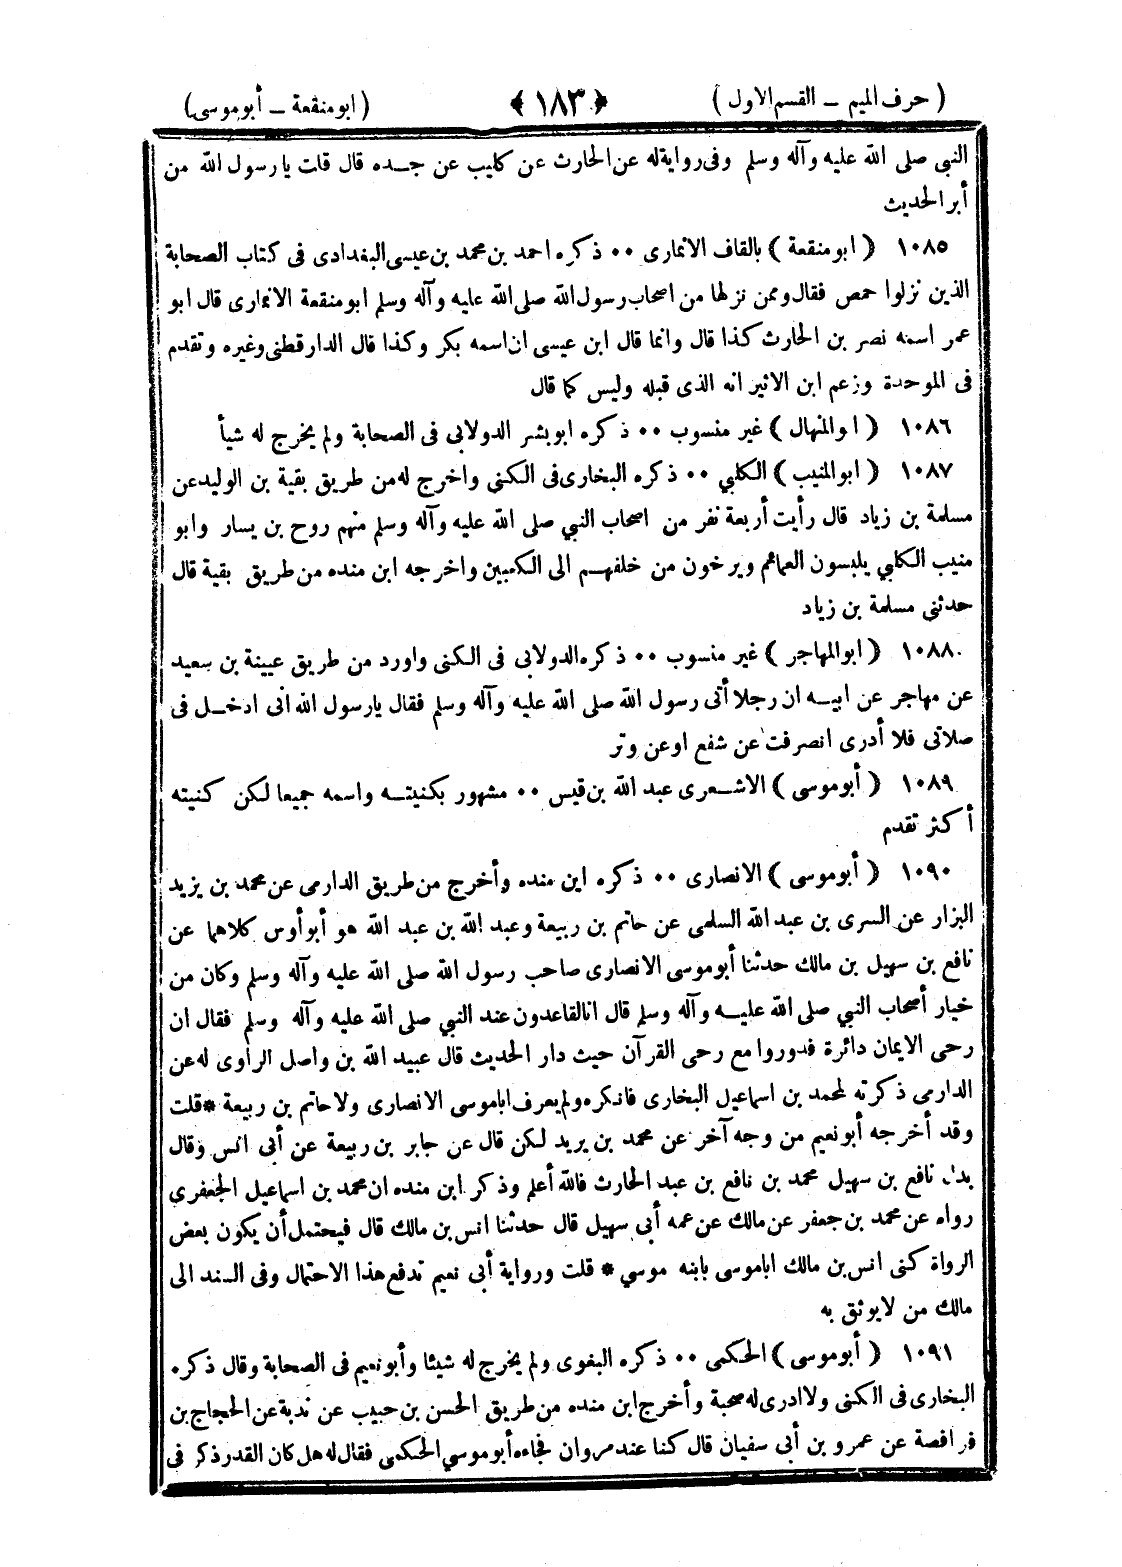 ( حرف الميم ـ القسم الاول ) ﴿١٨٣﴾ ( ابو منقعة ـ أبو موسى )
النبي صلى الله عليه وآله وسلم وفى رواية له عن الحارث عن كليب عن جـده قال قات يا رسول الله من
أبر الحديث
١٠٨٥ ( ابو منقعة ) بالقاف الانمارى ٠٠ ذكره احمد بن محمد بن عيسى البغدادى فى كتاب الصحابة
الذين نزلوا حمص فقال وممن نزلها من اصحاب رسول الله صلى الله عليه وآله وسلم ابو منقعة الانمارى قال ابو
عمر اسمه نصر بن الحارث كذا قال وانما قال ابن عيسى ان اسمه بكر وكذا قال الدارقطنى وغيره وتقدم
فى الموحدة وزعم ابن الاثير انه الذى قبله وليس كما قال
١٠٨٦ ( ابو المنهال ) غير منسوب ٠٠ ذكره ابو بشر الدولابى فى الصحابة ولم يخرج له شيأ
١٠٨٧ ( ابو المنيب ) الكلبي ٠٠ ذكره البخارى فى الكنى واخرج له من طريق بقية بن الوليد عن
مسلمة بن زياد قال رأيت أربعة نفر من اصحاب النبي صلى الله عليه وآله وسلم منهم روح بن يسار وابو
منيب الكلبي يلبسون العمائم ويرخون من خلفهـم الى الكعبين واخرجه ابن منده من طريق بقية قال
حدثنى مسلمة بن زياد
١٠٨٨ ( ابو المهاجر ) غير منسوب ٠٠ ذكره الدولابى فى الكنى واورد من طريق عيينة بن سعيد
عن مهاجر عن ابيـه ان رجلا أتى رسول الله صلى الله عليه وآله وسلم فقال يارسول الله انى ادخـل فى
صلاتى فلا أدرى انصرفت عن شفع او عن وتر
١٠٨٩ ( أبو موسى ) الاشـعرى عبد الله بن قيس ٠٠ مشهور بكنيتـه واسمه جميعا لكن كنيته
أكثر تقدم
١٠٩٠ ( أبو موسى ) الانصارى ٠٠ ذكره ابن منده وأخرج من طريق الدارمى عن محمد بن يزيد
البزار عن السرى بن عبد الله السلمى عن حاتم بن ربيعة وعبد الله بن عبد الله هو أبو أوس كلاهما عن
نافع بن سهيل بن مالك حدثنا أبو موسى الانصارى صاحب رسول الله صلى الله عليه وآله وسلم وكان من
خيار أصحاب النبي صلى الله عليـه وآله وسلم قال انا لقاعدون عند النبي صلى الله عليه وآله وسلم فقال ان
رحى الايمان دائرة فدوروا مع رحى القرآن حيث دار الحديث قال عبيد الله بن واصل الراوى له عن
الدارمى ذكرته لمحمد بن اسماعيل البخارى فانكره ولم يعرف اباموسى الانصارى ولا حاتم بن ربيعة * قلت
وقد أخرجه أبو نعيم من وجه آخر عن محمد بن يريد لكن قال عن جابر بن ربيعة عن أبى انس وقال
بدل نافع بن سهيل محمد بن نافع بن عبد الحارث فالله أعلم وذكر ابن منده ان محمد بن اسماعيل الجعفري
رواه عن محمد بن جعفر عن مالك عن عمه أبى سهيل قال حدثنا انس بن مالك قال فيحتمل أن يكون بعض
الرواة كنى انس بن مالك اباموسى بابنه موسي * قلت ورواية أبى نعيم تدفع هذا الاحتمال وفى السند الى
مالك من لايوثق به
١٠٩١ ( أبو موسى ) الحكمى ٠٠ ذكره البغوى ولم يخرج له شيئا وأبو نعيم فى الصحابة وقال ذكره
البخارى فى الكنى ولا ادرى له صحبة وأخرج ابن منده من طريق الحسن بن حبيب عن ندبة عن الحجاج بن
فرافصة عن عمرو بن أبي سفيان قال كنا عند مروان فجاءه أبو موسي الحكمى فقال له هل كان القدر ذكر فى